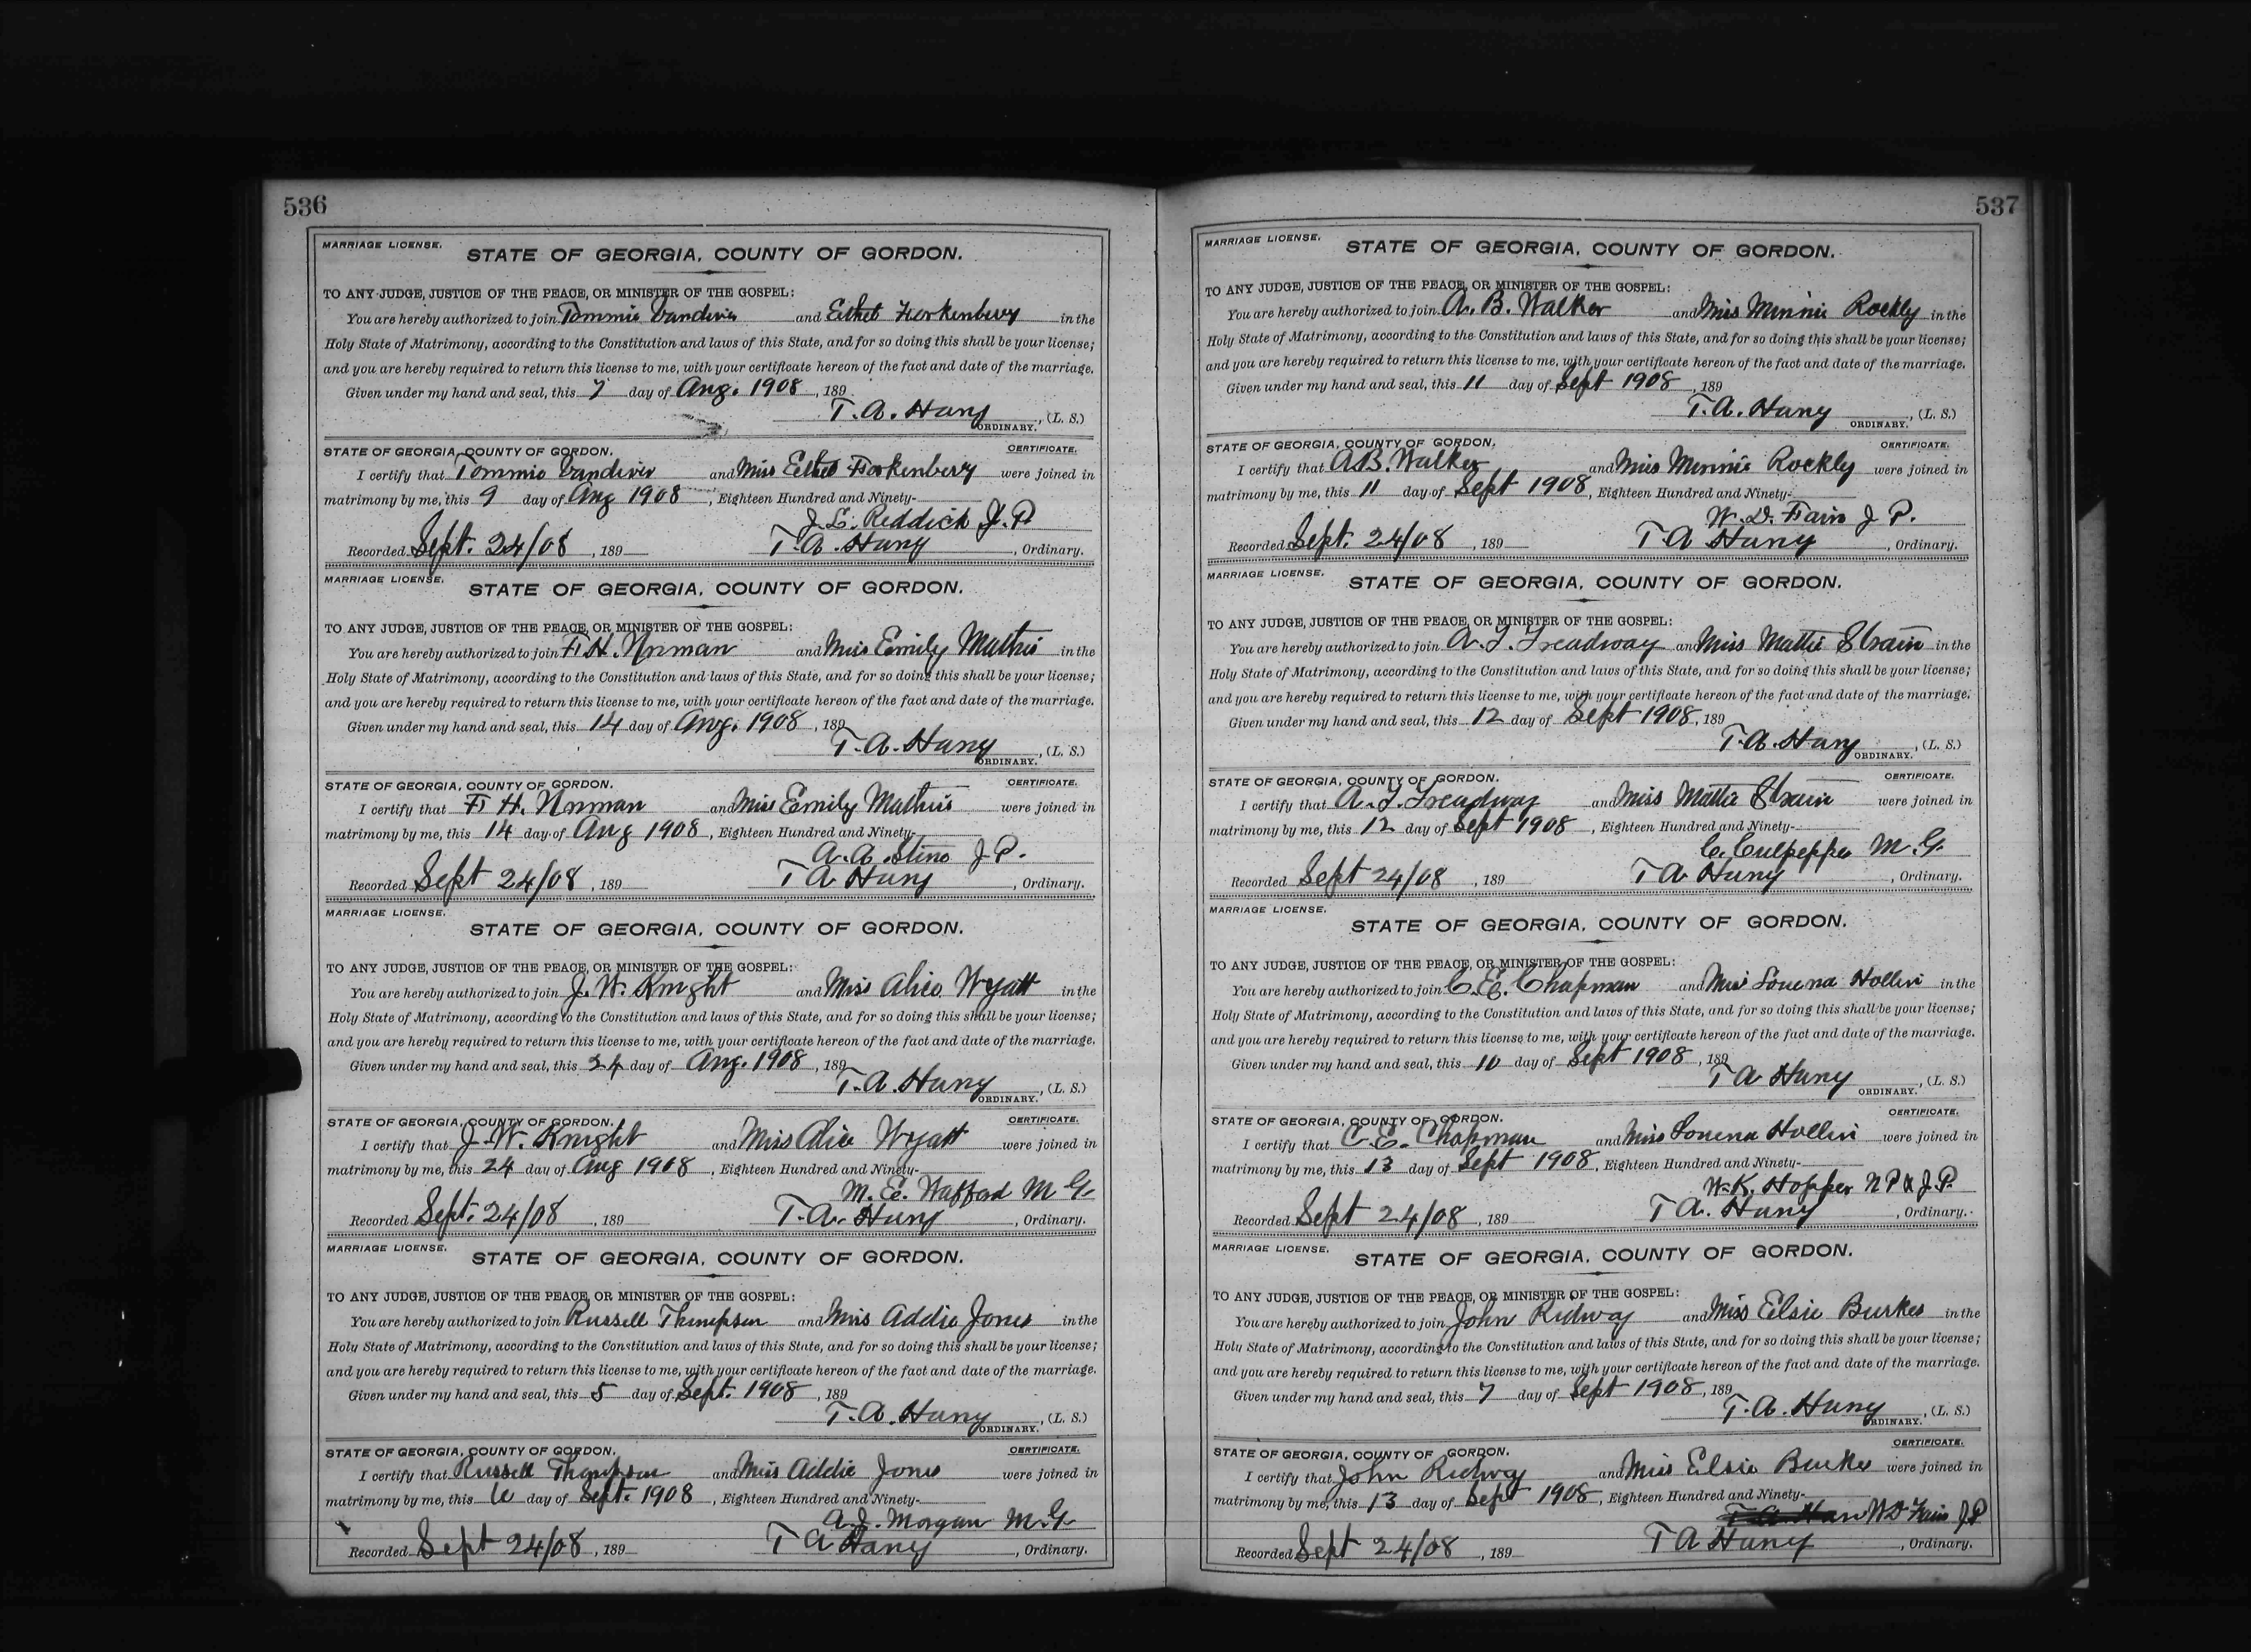 536
MARRIAGE LICENSE.
STATE OF GEORGIA, COUNTY OF GORDON.
TO ANY JUDGE, JUSTICE OF THE PEACE, OR MINISTER OF THE GOSPEL:
You are hereby authorized to join Tommie Vandiver and Ethel Forkenbery in the
Holy State of Matrimony, according to the Constitution and laws of this State, and for so doing this shall be your license;
and you are hereby required to return this license to me, with your certificate hereon of the fact and date of the marriage.
Given under my hand and seal, this 7 day of Aug. 1908, 189
T. A. Hany, (L. S.)
ORDINARY.
STATE OF GEORGIA, COUNTY OF GORDON. CERTIFICATE.
I certify that Tommie Vandiver and Miss Ethel Forkenbery were joined in
matrimony by me, this 9 day of Aug 1908, Eighteen Hundred and Ninety-
J. L. Reddick J. P.
Recorded Sept. 24/08, 189 T. A. Hany, Ordinary.
MARRIAGE LICENSE.
STATE OF GEORGIA, COUNTY OF GORDON.
TO ANY JUDGE, JUSTICE OF THE PEACE, OR MINISTER OF THE GOSPEL:
You are hereby authorized to join F. H. Norman and Miss Emily Mathis in the
Holy State of Matrimony, according to the Constitution and laws of this State, and for so doing this shall be your license;
and you are hereby required to return this license to me, with your certificate hereon of the fact and date of the marriage.
Given under my hand and seal, this 14 day of Aug. 1908, 189
T. A. Hany, (L. S.)
ORDINARY.
STATE OF GEORGIA, COUNTY OF GORDON. CERTIFICATE.
I certify that F. H. Norman and Miss Emily Mathis were joined in
matrimony by me, this 14 day of Aug 1908, Eighteen Hundred and Ninety-
A. A. J. P.
Recorded Sept 24/08, 189 T A Hany, Ordinary.
MARRIAGE LICENSE.
STATE OF GEORGIA, COUNTY OF GORDON.
TO ANY JUDGE, JUSTICE OF THE PEACE, OR MINISTER OF THE GOSPEL:
You are hereby authorized to join J. W. Knight and Miss Alice Wyatt in the
Holy State of Matrimony, according to the Constitution and laws of this State, and for so doing this shall be your license;
and you are hereby required to return this license to me, with your certificate hereon of the fact and date of the marriage.
Given under my hand and seal, this 24 day of Aug. 1908, 189
T. A. Hany, (L. S.)
ORDINARY.
STATE OF GEORGIA, COUNTY OF GORDON. CERTIFICATE.
I certify that J. W. Knight and Miss Alice Wyatt were joined in
matrimony by me, this 24 day of Aug 1908, Eighteen Hundred and Ninety-
M. E. Wafford M G.
Recorded Sept. 24/08, 189 T. A. Hany, Ordinary.
MARRIAGE LICENSE.
STATE OF GEORGIA, COUNTY OF GORDON.
TO ANY JUDGE, JUSTICE OF THE PEACE, OR MINISTER OF THE GOSPEL:
You are hereby authorized to join Russell Thompson and Miss Addie Jones in the
Holy State of Matrimony, according to the Constitution and laws of this State, and for so doing this shall be your license;
and you are hereby required to return this license to me, with your certificate hereon of the fact and date of the marriage.
Given under my hand and seal, this 5 day of Sept. 1908, 189
T. A. Hany, (L. S.)
ORDINARY.
STATE OF GEORGIA, COUNTY OF GORDON. CERTIFICATE.
I certify that Russell Thompson and Miss Addie Jones were joined in
matrimony by me, this 6 day of Sept. 1908, Eighteen Hundred and Ninety-
A. J. Morgan M. G.
Recorded Sept 24/08, 189 T A Hany, Ordinary.
537
MARRIAGE LICENSE.
STATE OF GEORGIA, COUNTY OF GORDON.
TO ANY JUDGE, JUSTICE OF THE PEACE, OR MINISTER OF THE GOSPEL:
You are hereby authorized to join A. B. Walker and Miss Minnie Rockly in the
Holy State of Matrimony, according to the Constitution and laws of this State, and for so doing this shall be your license;
and you are hereby required to return this license to me, with your certificate hereon of the fact and date of the marriage.
Given under my hand and seal, this 11 day of Sept 1908, 189
T. A. Hany, (L. S.)
ORDINARY.
STATE OF GEORGIA, COUNTY OF GORDON. CERTIFICATE.
I certify that A. B. Walker and Miss Minnie Rockly were joined in
matrimony by me, this 11 day of Sept 1908, Eighteen Hundred and Ninety-
W. D. Fain J P.
Recorded Sept. 24/08, 189 T A Hany, Ordinary.
MARRIAGE LICENSE.
STATE OF GEORGIA, COUNTY OF GORDON.
TO ANY JUDGE, JUSTICE OF THE PEACE, OR MINISTER OF THE GOSPEL:
You are hereby authorized to join A. T. Treadway and Miss Mattie Strain in the
Holy State of Matrimony, according to the Constitution and laws of this State, and for so doing this shall be your license;
and you are hereby required to return this license to me, with your certificate hereon of the fact and date of the marriage.
Given under my hand and seal, this 12 day of Sept 1908, 189
T. A. Hany, (L. S.)
ORDINARY.
STATE OF GEORGIA, COUNTY OF GORDON. CERTIFICATE.
I certify that A. T. Treadway and Miss Mattie Strain were joined in
matrimony by me, this 12 day of Sept 1908, Eighteen Hundred and Ninety-
C. Culpepper M. G.
Recorded Sept 24/08, 189 T A Hany, Ordinary.
MARRIAGE LICENSE.
STATE OF GEORGIA, COUNTY OF GORDON.
TO ANY JUDGE, JUSTICE OF THE PEACE, OR MINISTER OF THE GOSPEL:
You are hereby authorized to join C. E. Chapman and Miss Louena Hollin in the
Holy State of Matrimony, according to the Constitution and laws of this State, and for so doing this shall be your license;
and you are hereby required to return this license to me, with your certificate hereon of the fact and date of the marriage.
Given under my hand and seal, this 10 day of Sept 1908, 189
T A Hany, (L. S.)
ORDINARY.
STATE OF GEORGIA, COUNTY OF GORDON. CERTIFICATE.
I certify that C. E. Chapman and Miss Louena Hollin were joined in
matrimony by me, this 13 day of Sept 1908, Eighteen Hundred and Ninety-
W. K. Hopper N P & J. P.
Recorded Sept 24/08, 189 T A. Hany, Ordinary.
MARRIAGE LICENSE.
STATE OF GEORGIA, COUNTY OF GORDON.
TO ANY JUDGE, JUSTICE OF THE PEACE, OR MINISTER OF THE GOSPEL:
You are hereby authorized to join John Ridway and Miss Elsie Burkes in the
Holy State of Matrimony, according to the Constitution and laws of this State, and for so doing this shall be your license;
and you are hereby required to return this license to me, with your certificate hereon of the fact and date of the marriage.
Given under my hand and seal, this 7 day of Sept 1908, 189
T. A. Hany, (L. S.)
ORDINARY.
STATE OF GEORGIA, COUNTY OF GORDON. CERTIFICATE.
I certify that John Ridway and Miss Elsie Burkes were joined in
matrimony by me, this 13 day of Sept 1908, Eighteen Hundred and Ninety-
W D Fain J P
Recorded Sept 24/08, 189 T A Hany, Ordinary.